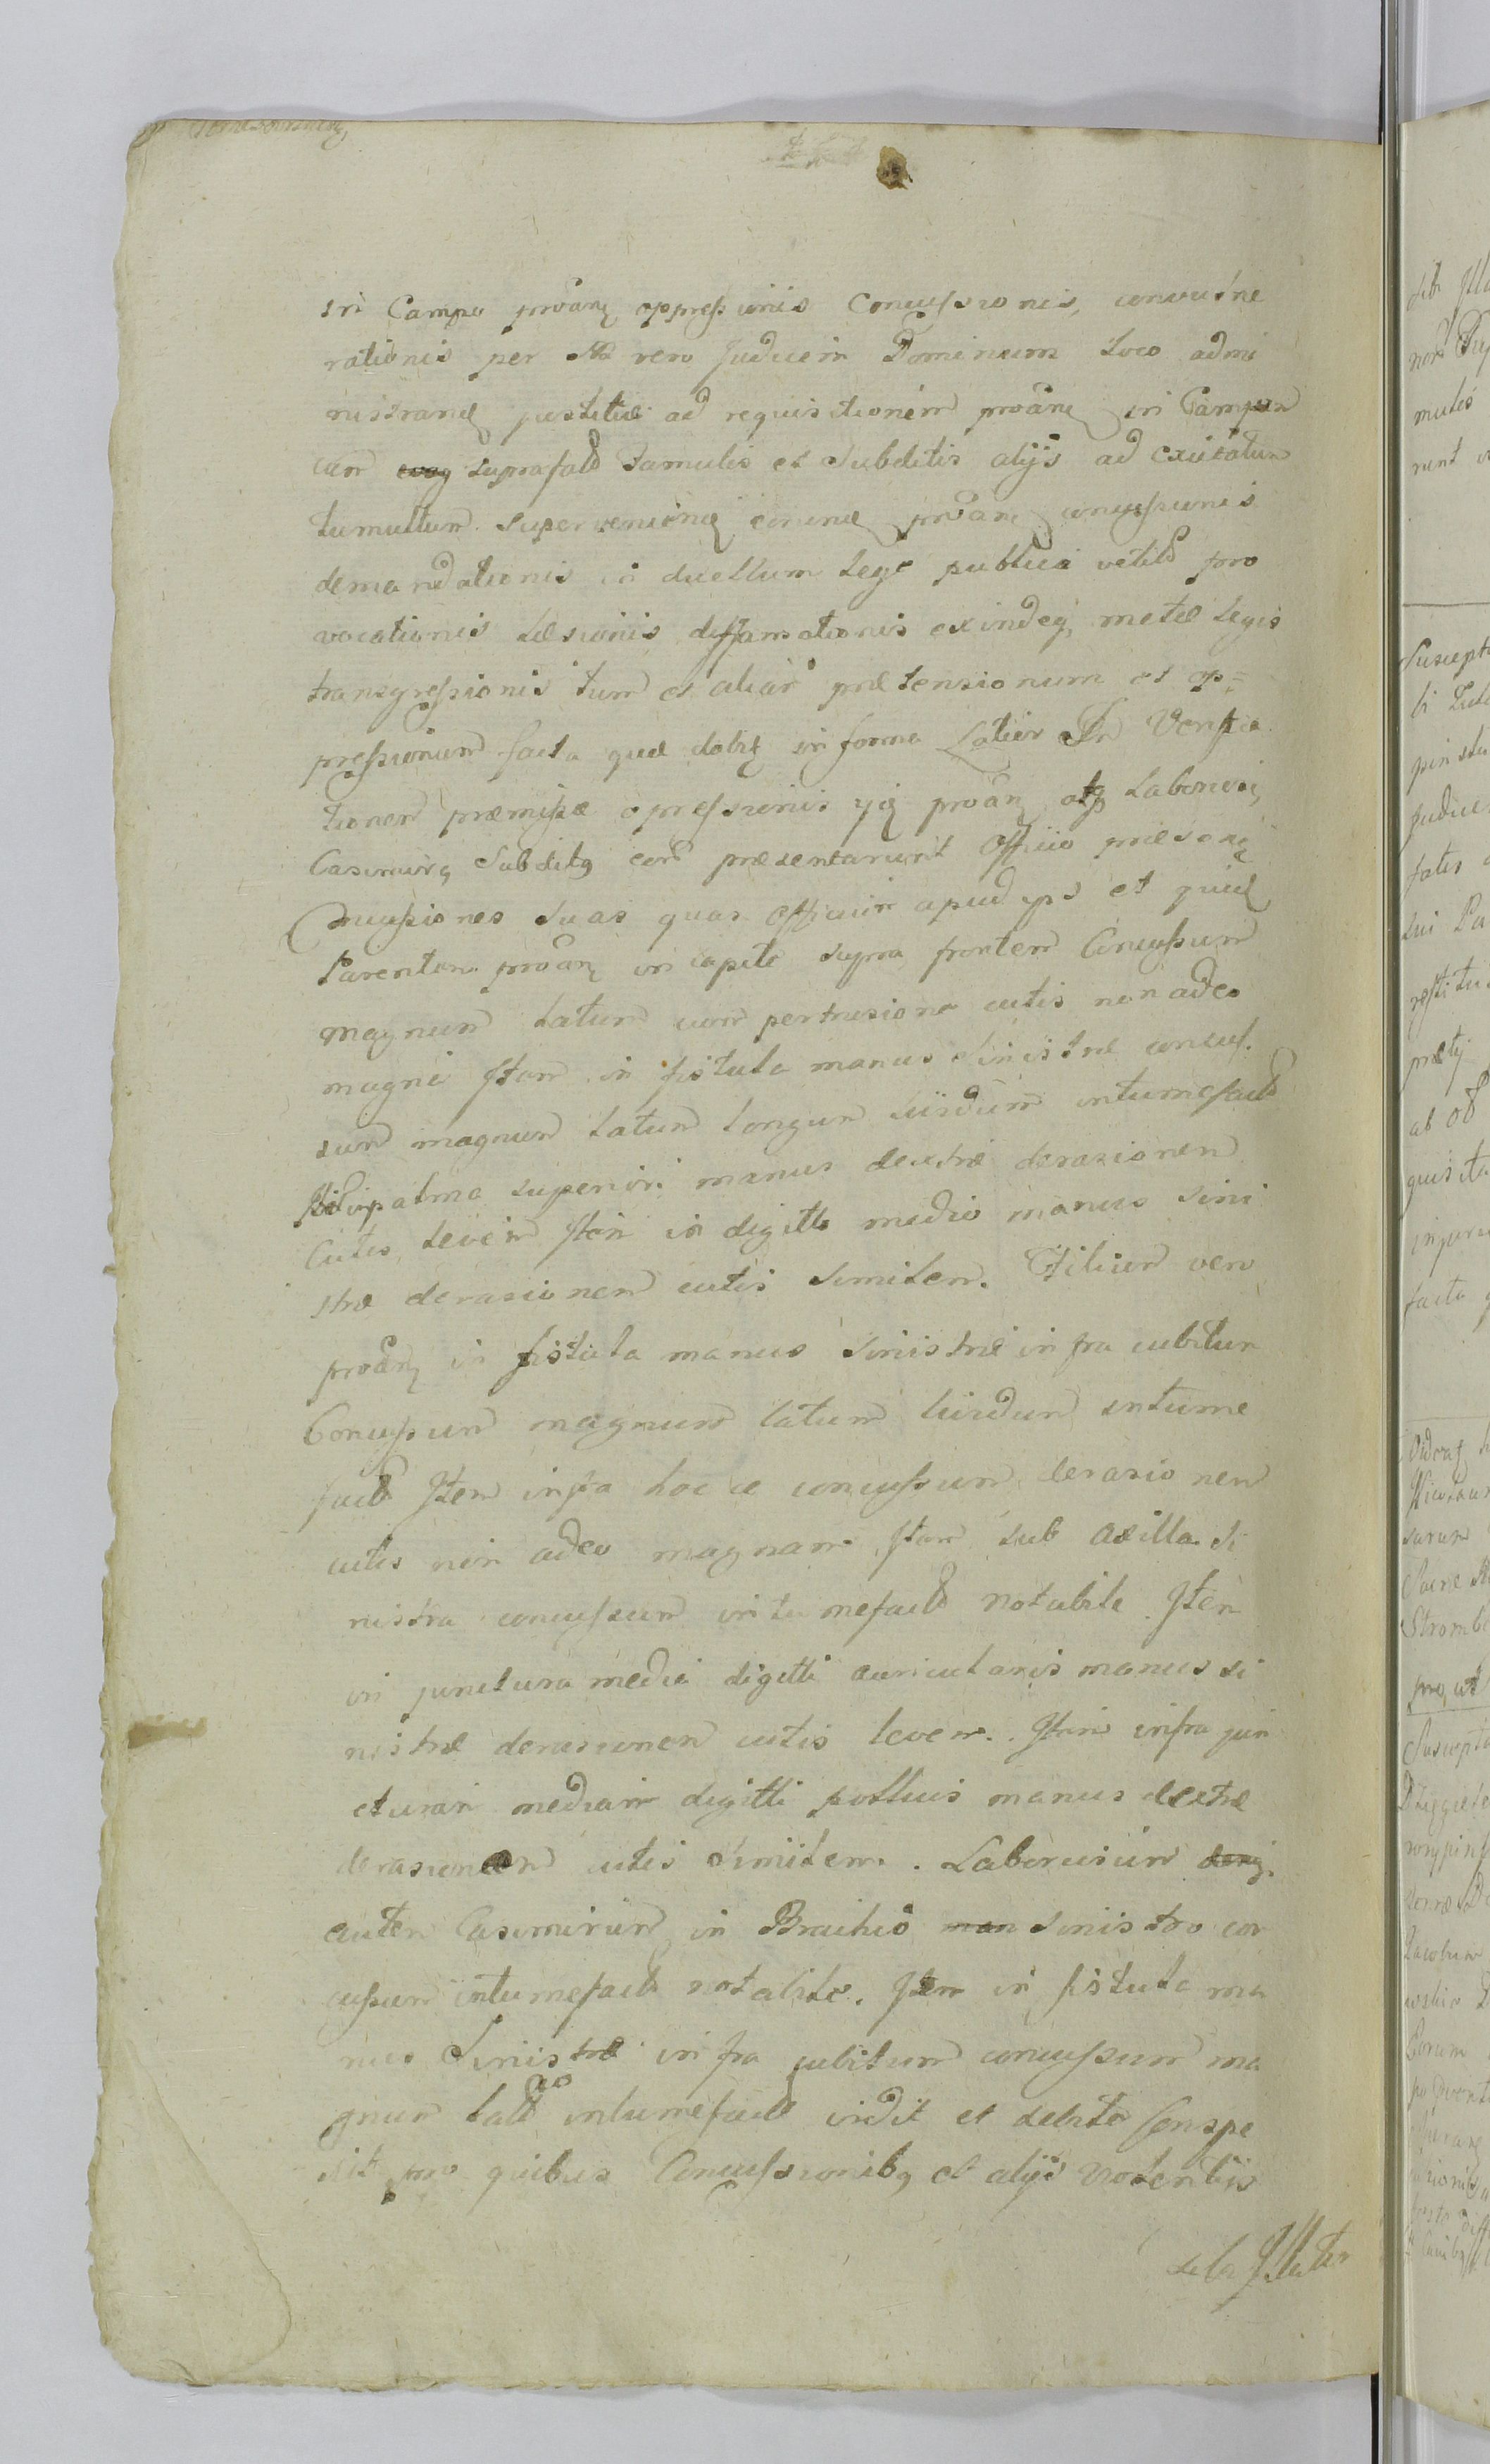 in Campo proãnę oppressionis Concussionis, convulne
rationis per Md vero Judicem Dominum loco admi
nistrandę justitiæ ad requisitionem proãnę in Campum
cum suprafatis famulis et Subditis alijs ad excitatum
tumultum supervenien eorund proãnę concussionis
demandationis in duellum lege publica vetit pro
vocationis læsionis diffamationis exindeq metæ legis
transgressionis tum et aliar prætensionum et op=
pressionum facta quæ dabit in forma Latior In Verifica
tionem præmissæ opressionis ijd proãn atq Laboriosi
Casimirq Subditq cor præsentarunt Officio præsenti
Concussiones suas quas Officium apud ips et quid
Parentem proãn in capite supra frontem Concussum
magnum latum cum pertusione cutis non adeo
magna Item in fistula manus Sinistræ concus.
sum magnum latum longum lividum intumefact
palma superiori manus dextræ derasionem
Cutis levem Item in digitto medio manus Sini
stræ derasionem cutis Similem. Filium vero
proãn in fistula manus Sinistræ infra cubitum
Concussum magnum latum lividum intume
fact Item infra hoc ce concussum derasionem
cutis non adeo magnam Item sub axilla Si
nistra concussum intumefact notabile Item
in junctura media digitti auricularis manus si
nistræ derasionem cutis levem. Item infra jun
cturam mediam digitti pollicis manus dextræ
derasionem cutis Similem. Laboriosum
autem Casimirum in Brachio sinistro con
cussum intumefact notabile. Item in fistula ma
nus Sinistræ infra cubitum concussum ma
gnum lat intumefact vidit et debite Conspe
xit pro quibus Concussionibq et alijs violentiis
sibi Illatis